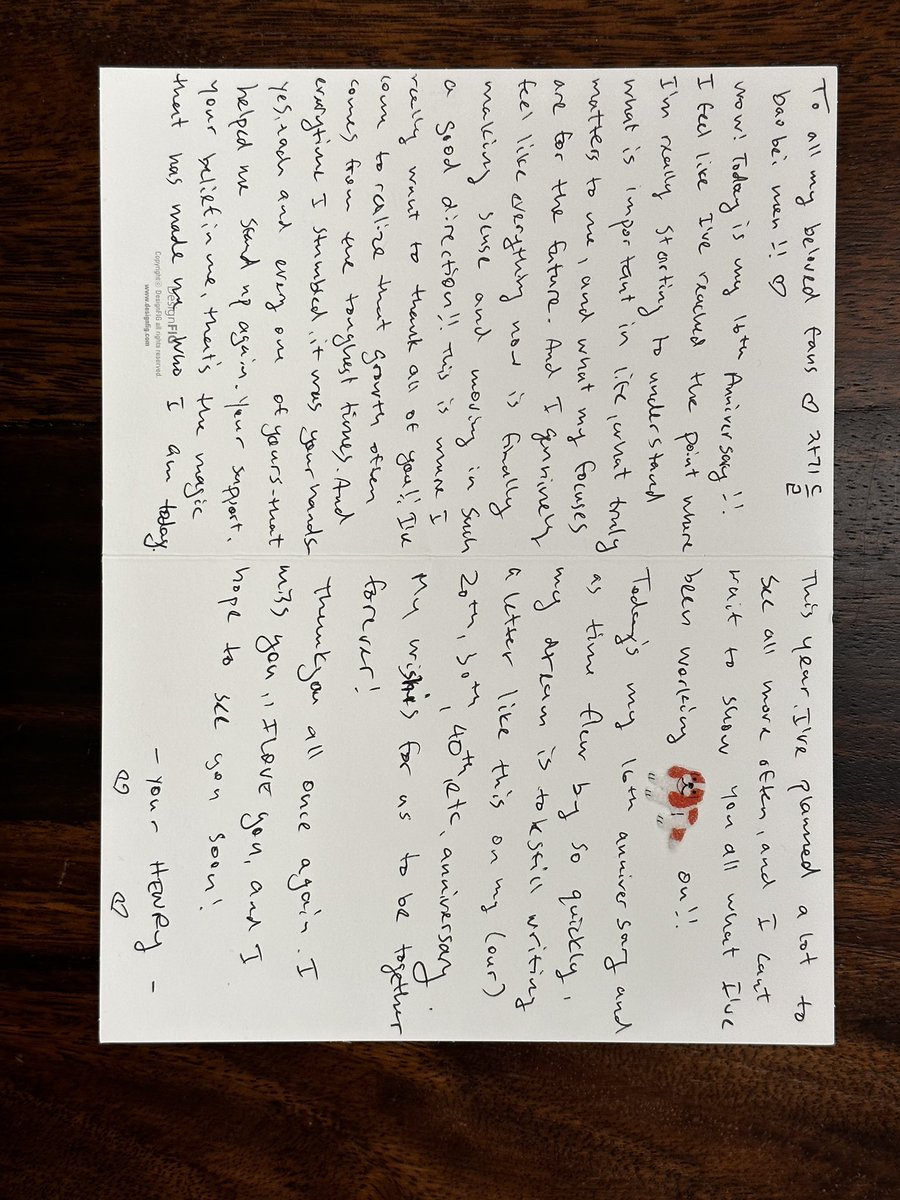 To all my beloved fans ♡ 자기들
baobei men!! ♡
wow! Today is my 16th Anniversary!!
I feel like I've reached the point where
I'm really starting to understand
what is important in life, what truly
matters to me, and what my focuses
are for the future. And I genuinely
feel like everything now is finally
making sense and moving in such
a good direction!! This is where I
really want to thank all of you!! I've
come to realize that growth often
comes from the toughest times. And
everytime I stumbled, it was your hands
yes, each and every one of yours-that
helped me stand up again. Your support,
your belief in me, that's the magic
that has made me who I am today.
DesignFIG
Copyright© DesignFIG all rights reserved.
www.designfig.com
This year, I've planned a lot to
see all more often, and I can't
wait to show you all what I've
been working on!!
Today's my 16th anniversary and
as time flew by so quickly,
my dream is to still writing
a letter like this on my (our)
20th, 30th, 40th, etc, anniversary.
My wishes for us to be together
forever!
Thank you all once again. I
miss you, I LOVE you, and I
hope to see you soon!
- your HENRY -
♡ ♡